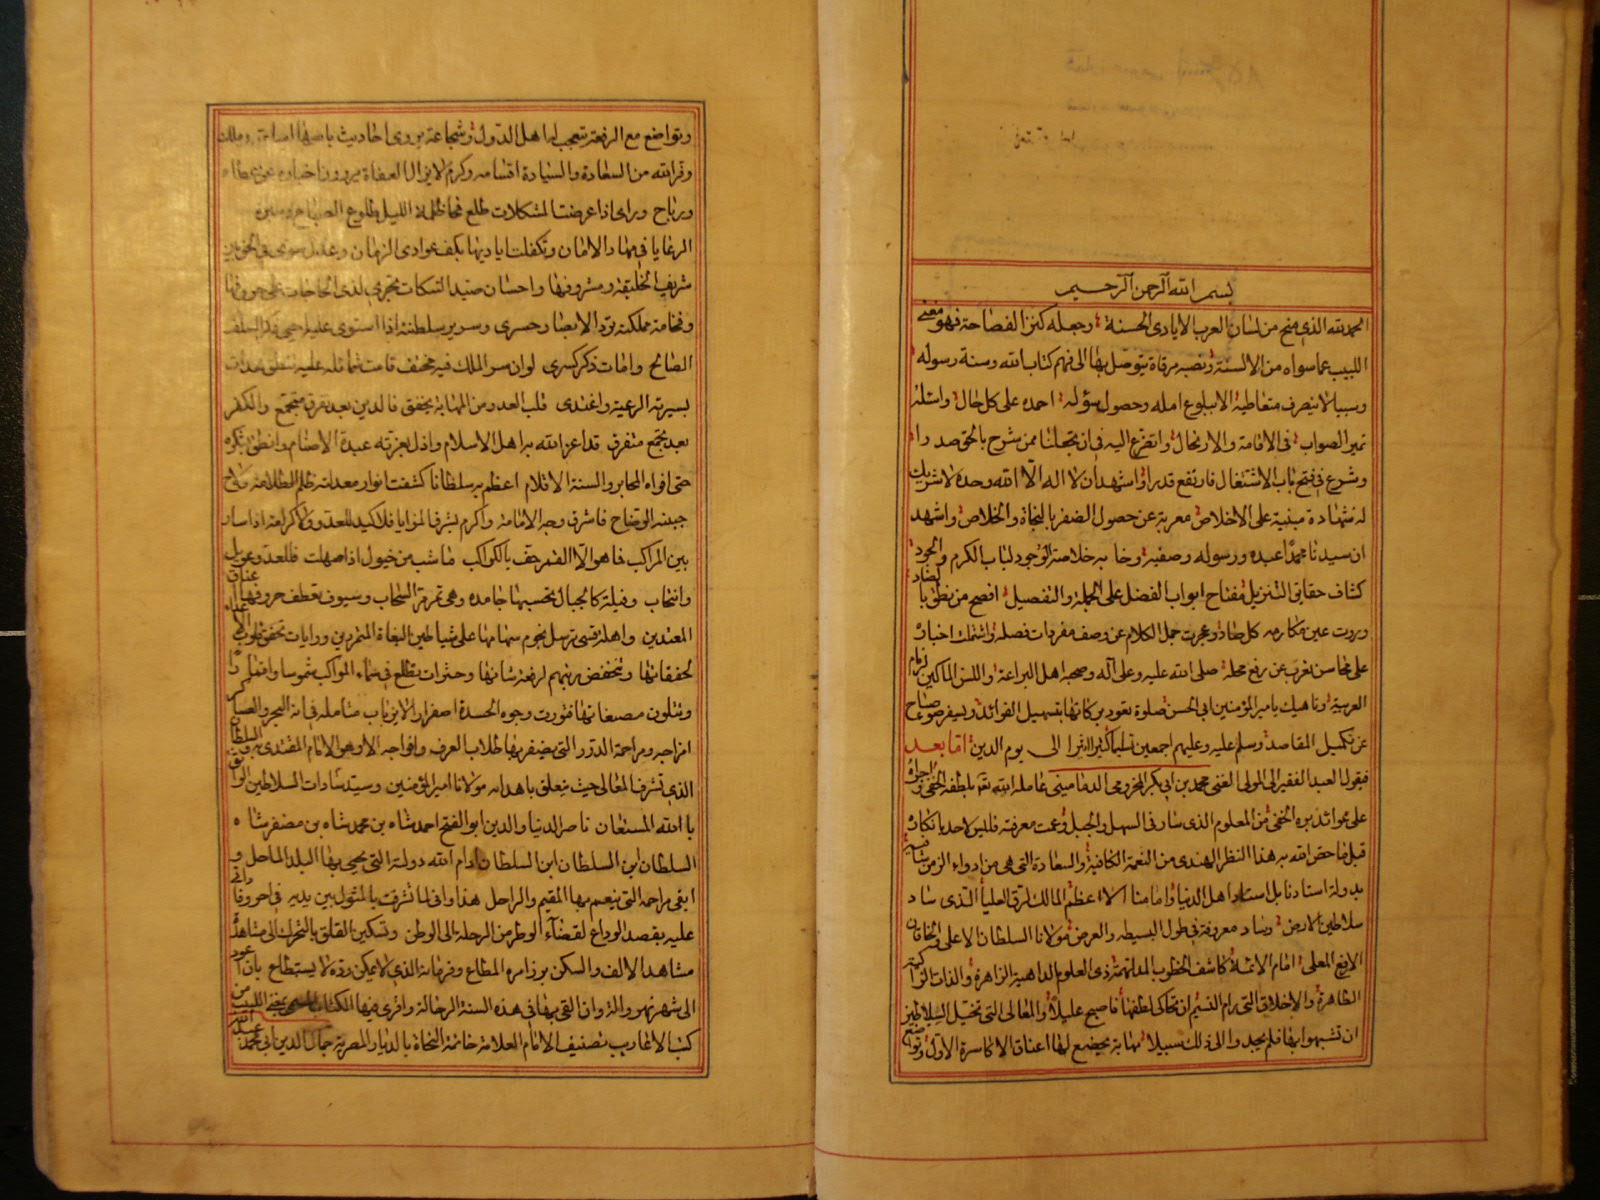 بسم الله الرحمن الرحيم
الحمد لله الذي منح من لسان العرب الايادي الحسنة وجعله كنز الفصاحة فهو مغني
اللبيب عما سواه من الالسنة ونصبه مرقاة يتوصل بها الى فهم كتاب الله وسنة رسوله
وسببا لا ينصرف متعاطيه الا ببلوغ امله وحصول سؤله احمده على كل حال واسئله
تميز الصواب في الاقامة والارتحال واتضرع اليه في ان يجعلنا ممن شرح بالحق صدرا
وشرع في فتح باب الاشتغال فارتفع قدرا واشهد ان لا اله الا الله وحده لا شريك
له شهادة مبنية على الاخلاص معربة عن حصول الضفر بالنجاة والخلاص واشهد
ان سيدنا محمدا عبده ورسوله وصفيه خلاصة الوجود لباب الكرم والجود
كشاف حقايق التنزيل مفتاح ابواب الفضل على الجملة والتفصيل افصح من نطق بالضاد
وروت عين مكارمه كل صاد وعجزت جمل الكلام عن وصف مفردات فضله
على محاسن تعرب عن رفع محله صلى الله عليه وعلى آله وصحبه اهل البراعة واللسن المالكين زمام
العربية وناهيك بامير المؤمنين ابي الحسن صلوة تعود بركاتها بتسهيل الفوائد ويسفر صباح
عن تكميل المقاصد وسلم عليه وعليهم اجمعين تسليما كثيرا الى يوم الدين اما بعد
فيقول العبد الفقير الى المولى الغني محمد بن ابي بكر المخزومي الدماميني عامله الله تعالى بلطفه الخفي واجراه
على عوائد بره الخفي من المعلوم الذي سار في السهل والجبل وعمت معرفته فليس لاحد بانكاره
قبل ما خص الله به هذا القطر الهندي من النعمة الكافية والسعادة التي هي من ادواء الزمن شافية
بدولة استادنا بل استاد اهل الدنيا وامامنا الاعظم المالك لرق العليا الذي ساد
سلاطين الارض وساد معروفه في طول البسيطه والعرض مولانا السلطان الاعلى والخاقان
الارفع المعلى امام الائمة كاشف الخطوب المدلهمة ذي العلوم الزاهرة والذات الزاكية
الطاهرة والاخلاق التي رام النسيم ان يحاكي لطفها فاصبح عليلا والمعالي التي تخيل السلاطين
ان تشبهوا بها فلم يجدوا الى ذلك سبيلا مهابة يخضع لها اعناق الاكاسرة الاول
وتواضع مع الرفعة تتعجب له اهل الدول وشجاعة يروى احاديث باصلها
وقر الله من السعادة والسيادة اقسامه وكرم لا يزال العفاة يروون اخباره عن عطاء
ورباح وراى اذا عرضت المشكلات طلع فمحا ظلمة الليل طلوع الصباح
الرعايا في مهاد الامان وتكفلت اياديها بكف عوادي الزمان وعدل
شريف الخليقة ومشروفها واحسان
وفخامة مملكته تود الابصار وسرير سلطنة اذا استوى عليه
الصالح وامات ذكر كسرى لو ان سر الملك فيه مختف قامت شمائله عليه
بسيرته الرعية واغتدى قلب العدو من المهابة يخفق فالدين بعد تفرق متجمع والكفر
بعد تجمع متفرق قد اعز الله به اهل الاسلام واذل بعزته عبدة الاصنام وانطق بشكره
حتى افواه المحابر والسنة الاقلام اعظم به سلطانا كشفت انوار معدلته ظلم الظلامة
جبينه الوضاح فاشرق وجه الاقامة واكرم بشرف المزايا اذا سار
بين المراكب فما هو الا القمر حف بالكواكب ما شئت من خيول اذا صهلت فللعدو عويل
وانتحاب وفيلة كالجبال تحسبها جامدة وهي تمر مر السحاب وسيوف تعطف حروفها
المعتدين واهلة قسي ترسل نجوم سهامها على شياطين البغاة المتمردين ورايات تخفق قلوب الاعداء
لخفقانها وتنخفض رتبهم لرفعة شانها وحترات تطلع في سماء المواكب شموسا واقمارا
وتتلون مصبغاتها فتورث وجوه الحسدة اصفرارا
افراجه ومراحمة الدرر التي يضفر بها طلاب العرف وافواجه الا وهو الامام المقتدى
الذي تشرف المعالي حيث يتعلق باهدابه مولانا امير المؤمنين وسيد سادات السلاطين الواثق
بالله المستعان ناصر الدنيا والدين ابو الفتح احمد شاه بن محمد شاه بن مضفر شاه
السلطان ابن السلطان ابن السلطان ادام الله دولته التي يحيى بها البلد الماحل و
ابقى مراحمه التي ينعم بها المقيم والراحل هذا واني لما تشرفت بالمثول بين يديه
عليه بقصد الوداع لقضاء الوطر من الرحلة الى الوطن وتسكين القلق بالتحرك الى مشاهدة
مشاهد الالف والسكن برز امره المطاع وفرمانه الذي لا يمكن رده لا يستطاع بان اعود
الى شهر نهروالة وان القي بها في هذه السنة الرحالة واقري فيها الكتاب المسمى بمغني اللبيب من
كتب الاعاريب تصنيف الامام العلامة خاتمة النحاة بالديار المصرية جمال الدين ابي محمد عبد الله